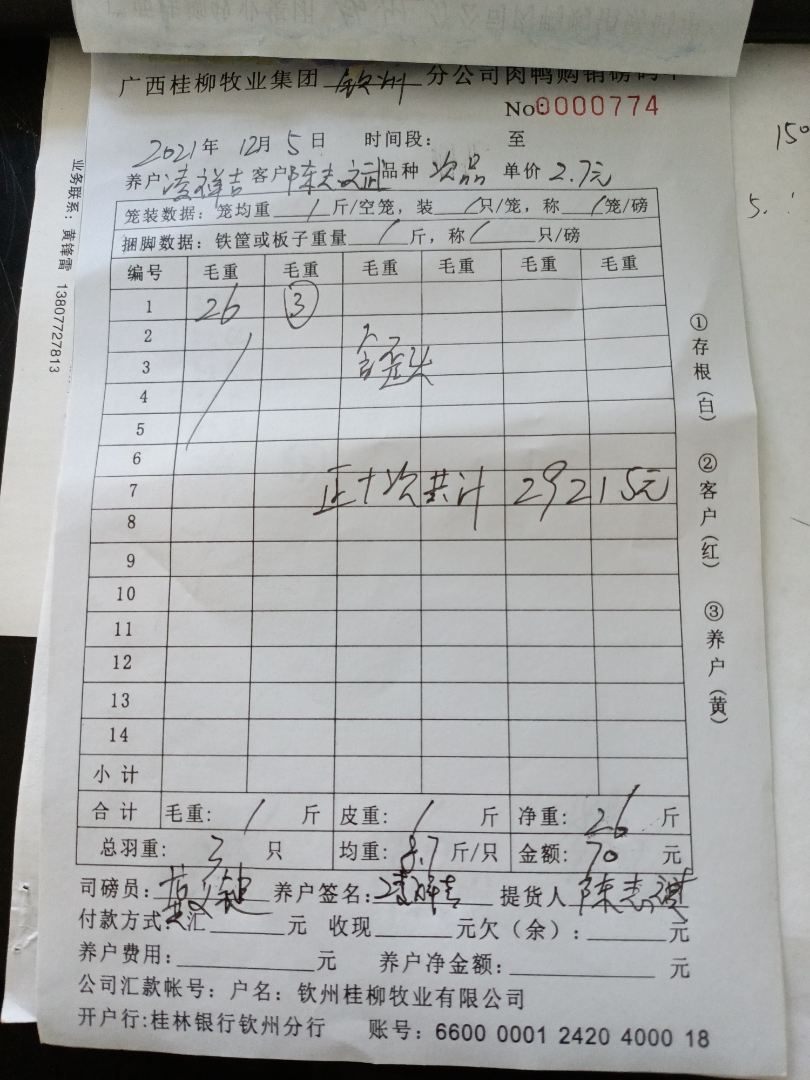 广西桂柳牧业集团 钦州 分公司肉鸭购销磅码单
No:0000774
2021年 12月 5日 时间段: 至
养户 凌祥吉 客户 陈志武 品种 次品 单价 2.7元
笼装数据: 笼均重 / 斤/空笼, 装 / 只/笼, 称 / 笼/磅
捆脚数据: 铁筐或板子重量 / 斤, 称 / 只/磅
编号 毛重 毛重 毛重 毛重 毛重 毛重
1 26 ③
2
3 歪头
4
5
6
7 正+次共计 29215元
8
9
10
11
12
13
14
小计
合计 毛重: / 斤 皮重: / 斤 净重: 26 斤
总羽重: 3 只 均重: 8.7 斤/只 金额: 70 元
司磅员: 养户签名: 凌祥吉 提货人 陈志
付款方式:汇 元 收现 元欠(余): 元
养户费用: 元 养户净金额: 元
公司汇款帐号: 户名: 钦州桂柳牧业有限公司
开户行:桂林银行钦州分行 账号: 6600 0001 2420 4000 18
①存根(白) ②客户(红) ③养户(黄)
业务联系: 黄锋雷 13807727813
150
5.